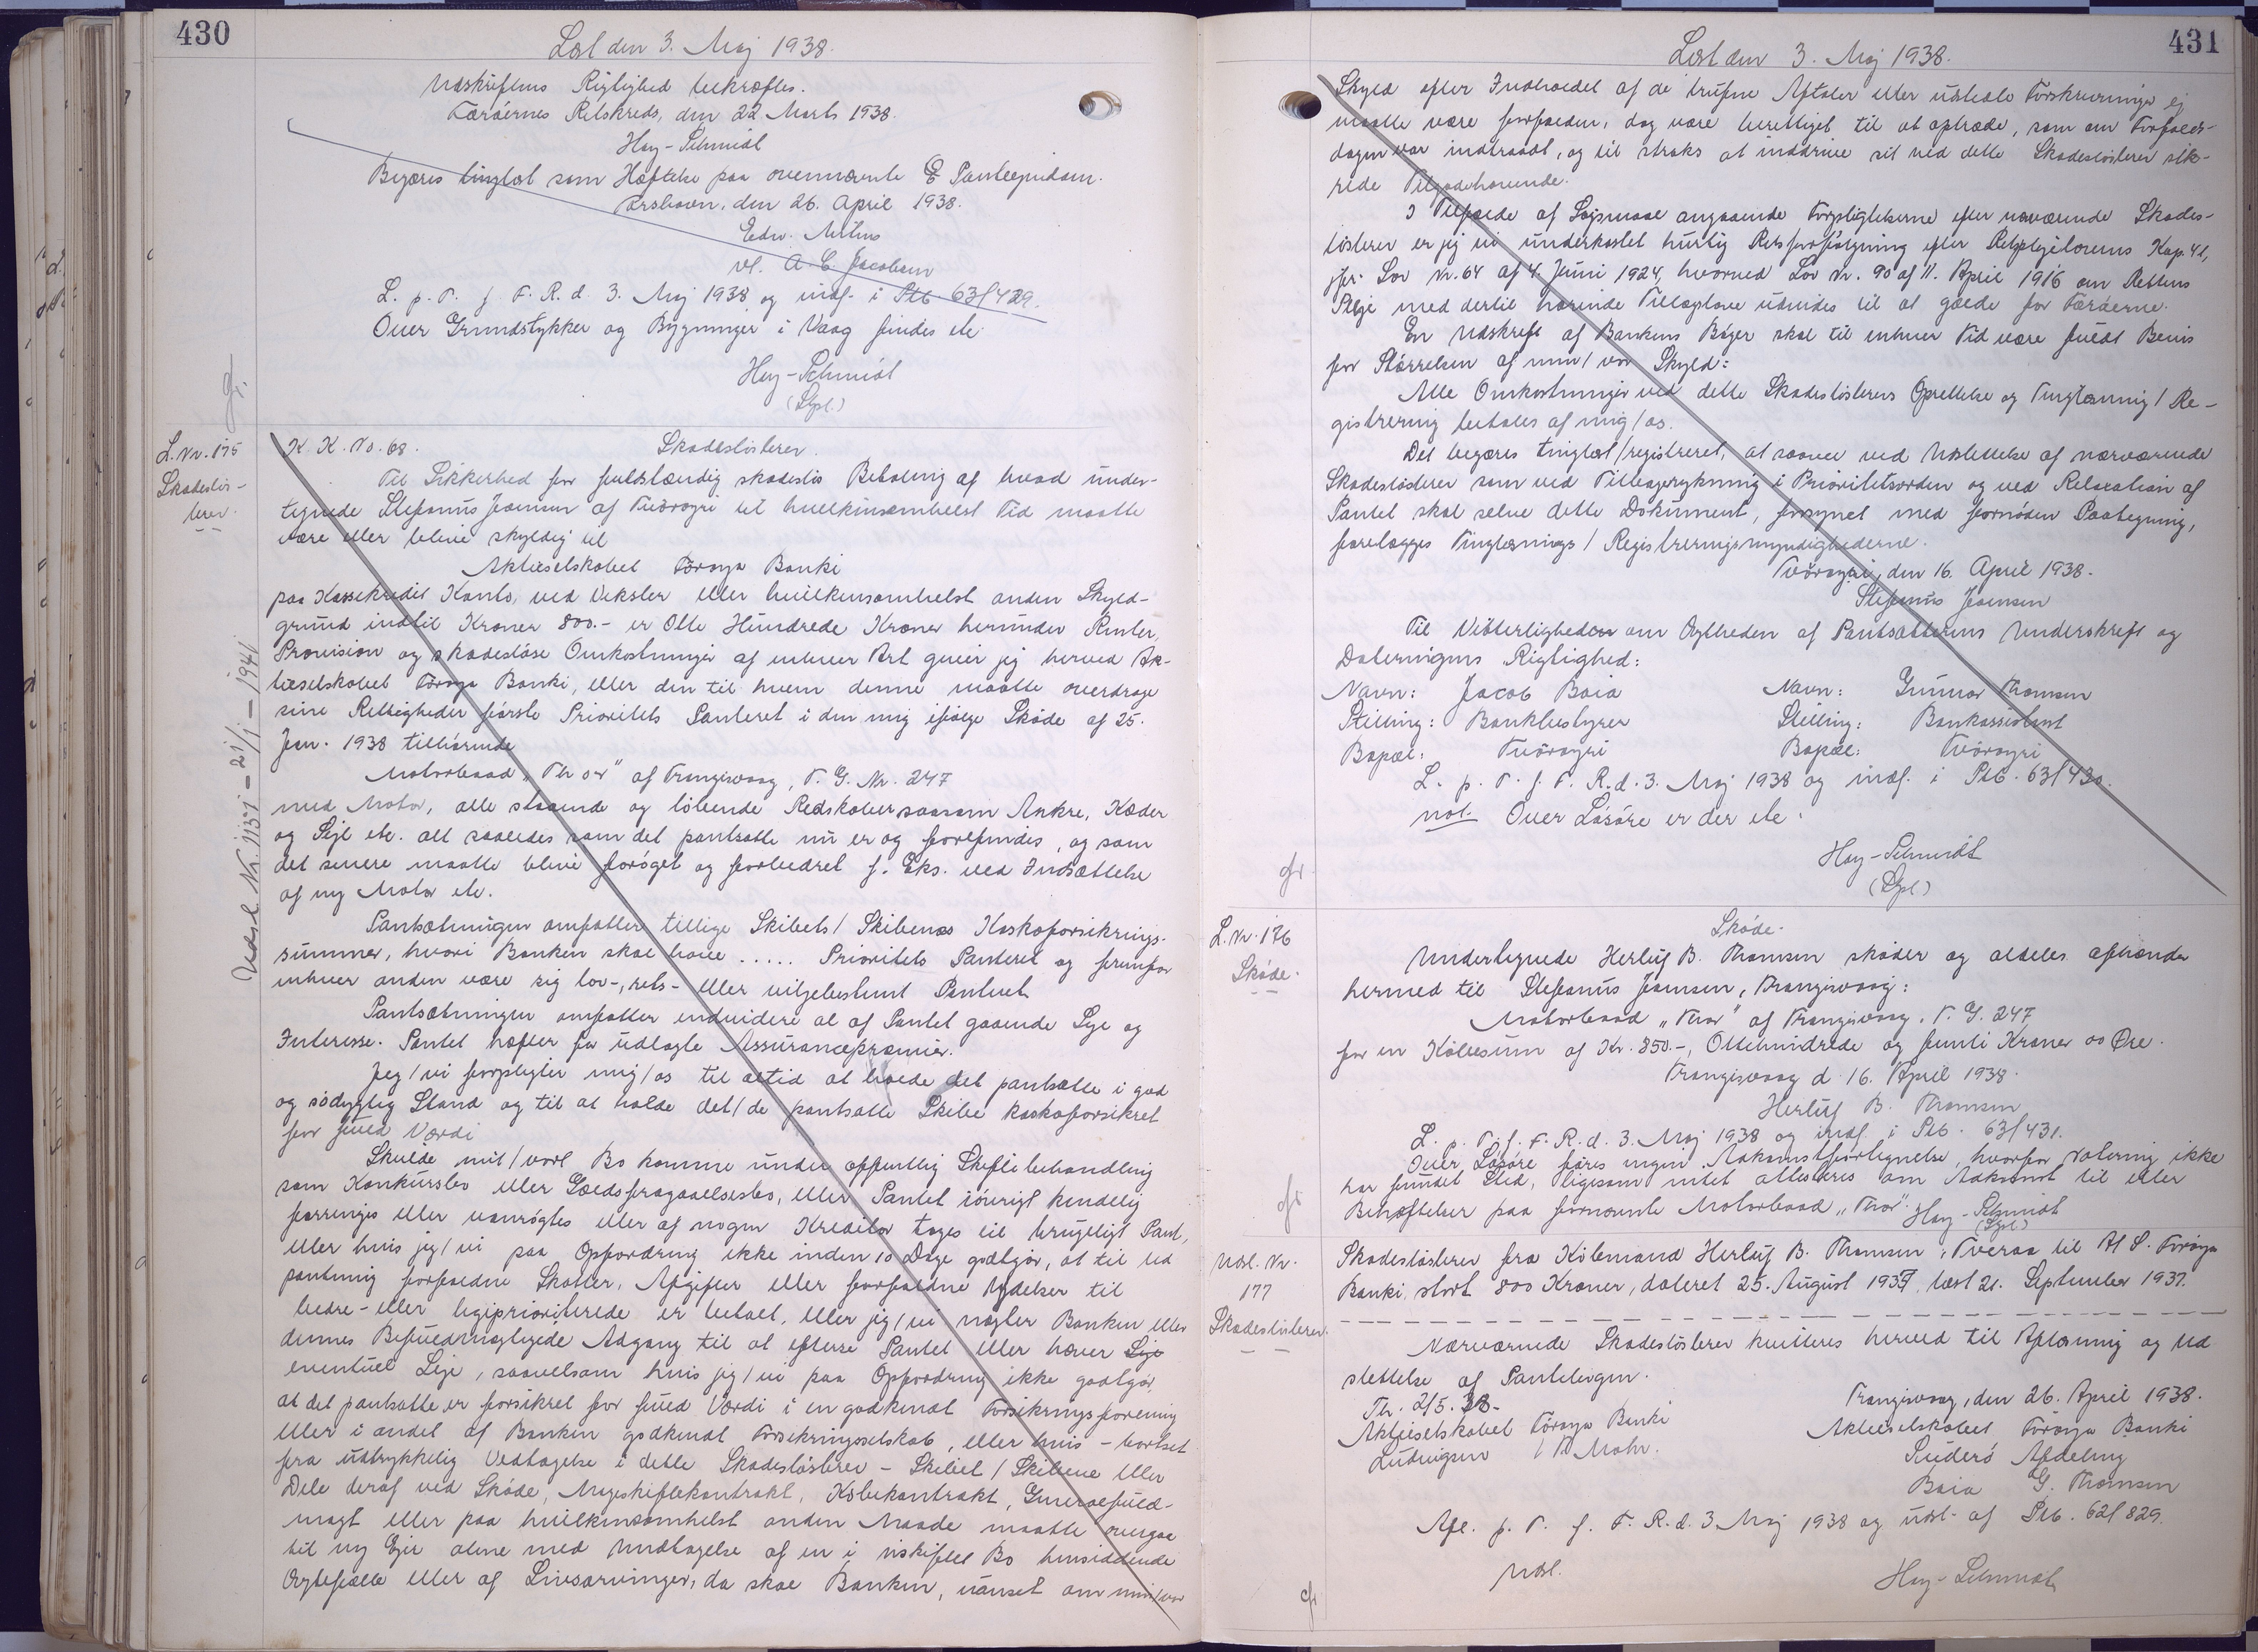 430
Læst den 3. Maj 1938.
Udskriftens Rigtighed bekræftes.
Færøernes Retskreds, den 22 Marts 1938.
Høy-Schmidt
Begæres tinglæst som Hæftelse paa ovennævnte Panteejendom.
Torshavn, den 26. April 1938.
Edw. Mitens
vl. A. C. Jacobsen
L. p. T. f. F. R. d. 3. Maj 1938 og indf. i Ptb 63/429.
Over Grundstykker og Bygninger i Vaag findes etc.
Høy-Schmidt
(Spl.)
L. Nr. 175
Skadesløs-
brev.
Udsl. Nr. 1137 - 21/1 - 1941
K. K. No. 68. Skadesløsbrev.
Til Sikkerhed for fuldstændig skadesløs Betaling af hvad under-
tegnede Stefanus Joensen af Tvöroyri til hvilkensomhelst Tid maatte
være eller blive skyldig til
Aktieselskabet Føroya Banki
paa Kassekredit Konto, ved Veksler eller hvilkensomhelst anden Skyld-
grund indtil Kroner 800.- er Otte Hundrede Kroner herunder Renter,
Provision og skadesløse Omkostninger af enhver Art giver jeg herved Ak-
tieselskabet Føroya Banki, eller den til hvem denne maatte overdrage
sine Rettigheder første Prioritets Panteret i den mig ifølge Skøde af 25.
Jan. 1938 tilhørende
Motorbaad "Thor" af Trangisvaag, T. G. Nr. 247
med Motor, alle staaende og løbende Redskaber saasom Ankre, Kæder
og Sejl etc. alt saaledes som det pantsatte nu er og forefindes, og som
det senere maatte blive forøget og forbedret f. Eks. ved Indsættelse
af ny Motor etc.
Pantsætningen omfatter tillige Skibets/Skibenes Kaskoforsikrings-
summer, hvori Banken skal have ..... Prioritets Panteret og fremfor
enhver anden være sig lov-, rets- eller viljebestemt Panteret
Pantsætningen omfatter endvidere al af Pantet gaaende Leje og
Interesse. Pantet hæfter for udlagte Assurancepræmier.
Jeg/vi forpligter mig/os til altid at holde det pantsatte i god
og sødygtig Stand og til at holde det/de pantsatte Skibe kaskoforsikret
for fuld Værdi
Skulde mit/vort Bo komme under offentlig Skiftebehandling
som Konkursbo eller Gældsfragaaelsesbo, eller Pantet iøvrigt kendelig
forringes eller vanrøgtes eller af nogen Kreditor tages til brugeligt Pant,
eller hvis jeg/vi paa Opfordring ikke inden 10 Dage godtgør, at til Ud
pantning forfaldne Skatter, Afgifter eller forfaldne Ydelser til
bedre- eller ligeprioriterede er betalt, eller jeg/vi nægter Banken eller
dennes Befuldmægtigede Adgang til at efterse Pantet eller hæver Leje
eventuel Leje, saavelsom hvis jeg/vi paa Opfordring ikke godtgør,
at det pantsatte er forsikret for fuld Værdi i en godkendt Forsikringsforening
eller i andet af Banken godkendt Forsikringsselskab, eller hvis - bortset
fra udtrykkelig Vedtagelse i dette Skadesløsbrev - Skibet/Skibene eller
Dele deraf ved Skøde, Mageskiftekontrakt, Købekontrakt, Generalfuld-
magt eller paa hvilkensomhelst anden Maade maatte overgaa
til ny Ejer alene med Undtagelse af en i uskiftet Bo hensiddende
Ægtefælle eller af Livsarvinger, da skal Banken, uanset om min/vor
431
Læst den 3. Maj 1938.
Skyld efter Indholdet af de trufne Aftaler eller udstedte Forskrivninger ej
maatte være forfalden, dog være berettiget til at optræde, som om Forfalds-
dagen var indtraadt, og til straks at inddrive sit ved dette Skadesløsbrev sik-
rede Tilgodehavende.
I Tilfælde af Søgsmaal angaaende Forpligtelserne efter nærværende Skades-
løsbrev er jeg/vi underkastet hurtig Retsforfølgning efter Retsplejelovens Kap. 41,
jfr. Lov Nr. 64 af 4. Juni 1924, hvorved Lov Nr. 90 af 11. April 1916 om Rettens
Pleje med dertil hørende Tillægslove udvides til at gælde for Færøerne.
En Udskrift af Bankens Bøger skal til enhver Tid være fuldt Bevis
for Størrelsen af min/vor Skyld:
Alle Omkostninger ved dette Skadesløsbrevs Oprettelse og Tinglæsning/Re-
gistrering betales af mig/os.
Det begæres tinglæst/registreret, at saavel ved Udslettelse af nærværende
Skadesløsbrev som ved Tilbagerykning i Prioritetsorden og ved Relaxation af
Pantet skal selve dette Dokument, forsynet med fornøden Paategning,
forelægges Tinglæsnings/Registreringsmyndighederne.
Tvöroyri, den 16. April 1938.
Stefanus Joensen
Til Vitterligheden om Ægtheden af Pantsætterens Underskrift og
Dateringens Rigtighed:
Navn: Jacob Baia Navn: Gunnar Thomsen
Stilling: Bankbestyrer Stilling: Bankassistent
Bopæl: Tvöroyri Bopæl: Tvöroyri
L. p. T. f. F. R. d. 3. Maj 1938 og indf. i Ptb. 63/430.
not. Over Løsøre er der etc.
Høy-Schmidt
(Spl)
L. Nr. 176
Skøde.
Skøde.
Undertegnede Herluf B. Thomsen skøder og aldeles afhænder
hermed til Stefanus Joensen, Trangisvaag:
Motorbaad "Thor" af Trangisvaag, T. G. 247
for en Købesum af Kr. 850.-, Ottehundrede og femti Kroner 00 Øre.
Trangisvaag d. 16. April 1938.
Herluf B. Thomsen
L. p. T. f. F. R. d. 3. Maj 1938 og indf. i Ptb. 63/431.
Over Løsøre føres ingen Adkomstfortegnelse, hvorfor Notering ikke
har fundet Sted, ligesom intet attesteres om Adkomst til eller
Behæftelser paa fornævnte Motorbaad "Thor". Høy-Schmidt
(Spl)
Udsl. Nr.
177
Skadesløsbrev.
Skadesløsbrev fra Købmand Herluf B. Thomsen, Tveraa til A/S. Føroya
Banki, stort 800 Kroner, dateret 25. August 1937, læst 21. September 1937.
Nærværende Skadesløsbrev kvitteres herved til Aflæsning og Ud
slettelse af Pantebogen.
Th. 2/5. 38. Trangisvaag, den 26. April 1938.
Aktieselskabet Føroya Banki Aktieselskabet Føroya Banki
Ludvigsen / Mohr. Suderö Afdeling
Baia G. Thomsen
Afl. p. T. f. F. R. d. 3 Maj 1938 og udsl. af Ptb. 62/829.
Udsl. Høy-Schmidt